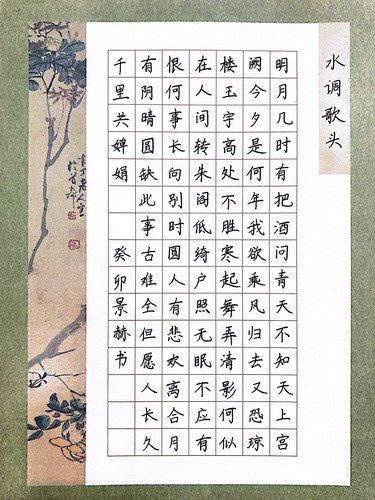 水调歌头
明月几时有把酒问青天不知天上宫
阙今夕是何年我欲乘风归去又恐琼
楼玉宇高处不胜寒起舞弄清影何似
在人间转朱阁低绮户照无眠不应有
恨何事长向别时圆人有悲欢离合月
有阴晴圆缺此事古难全但愿人长久
千里共婵娟 癸卯景赫书